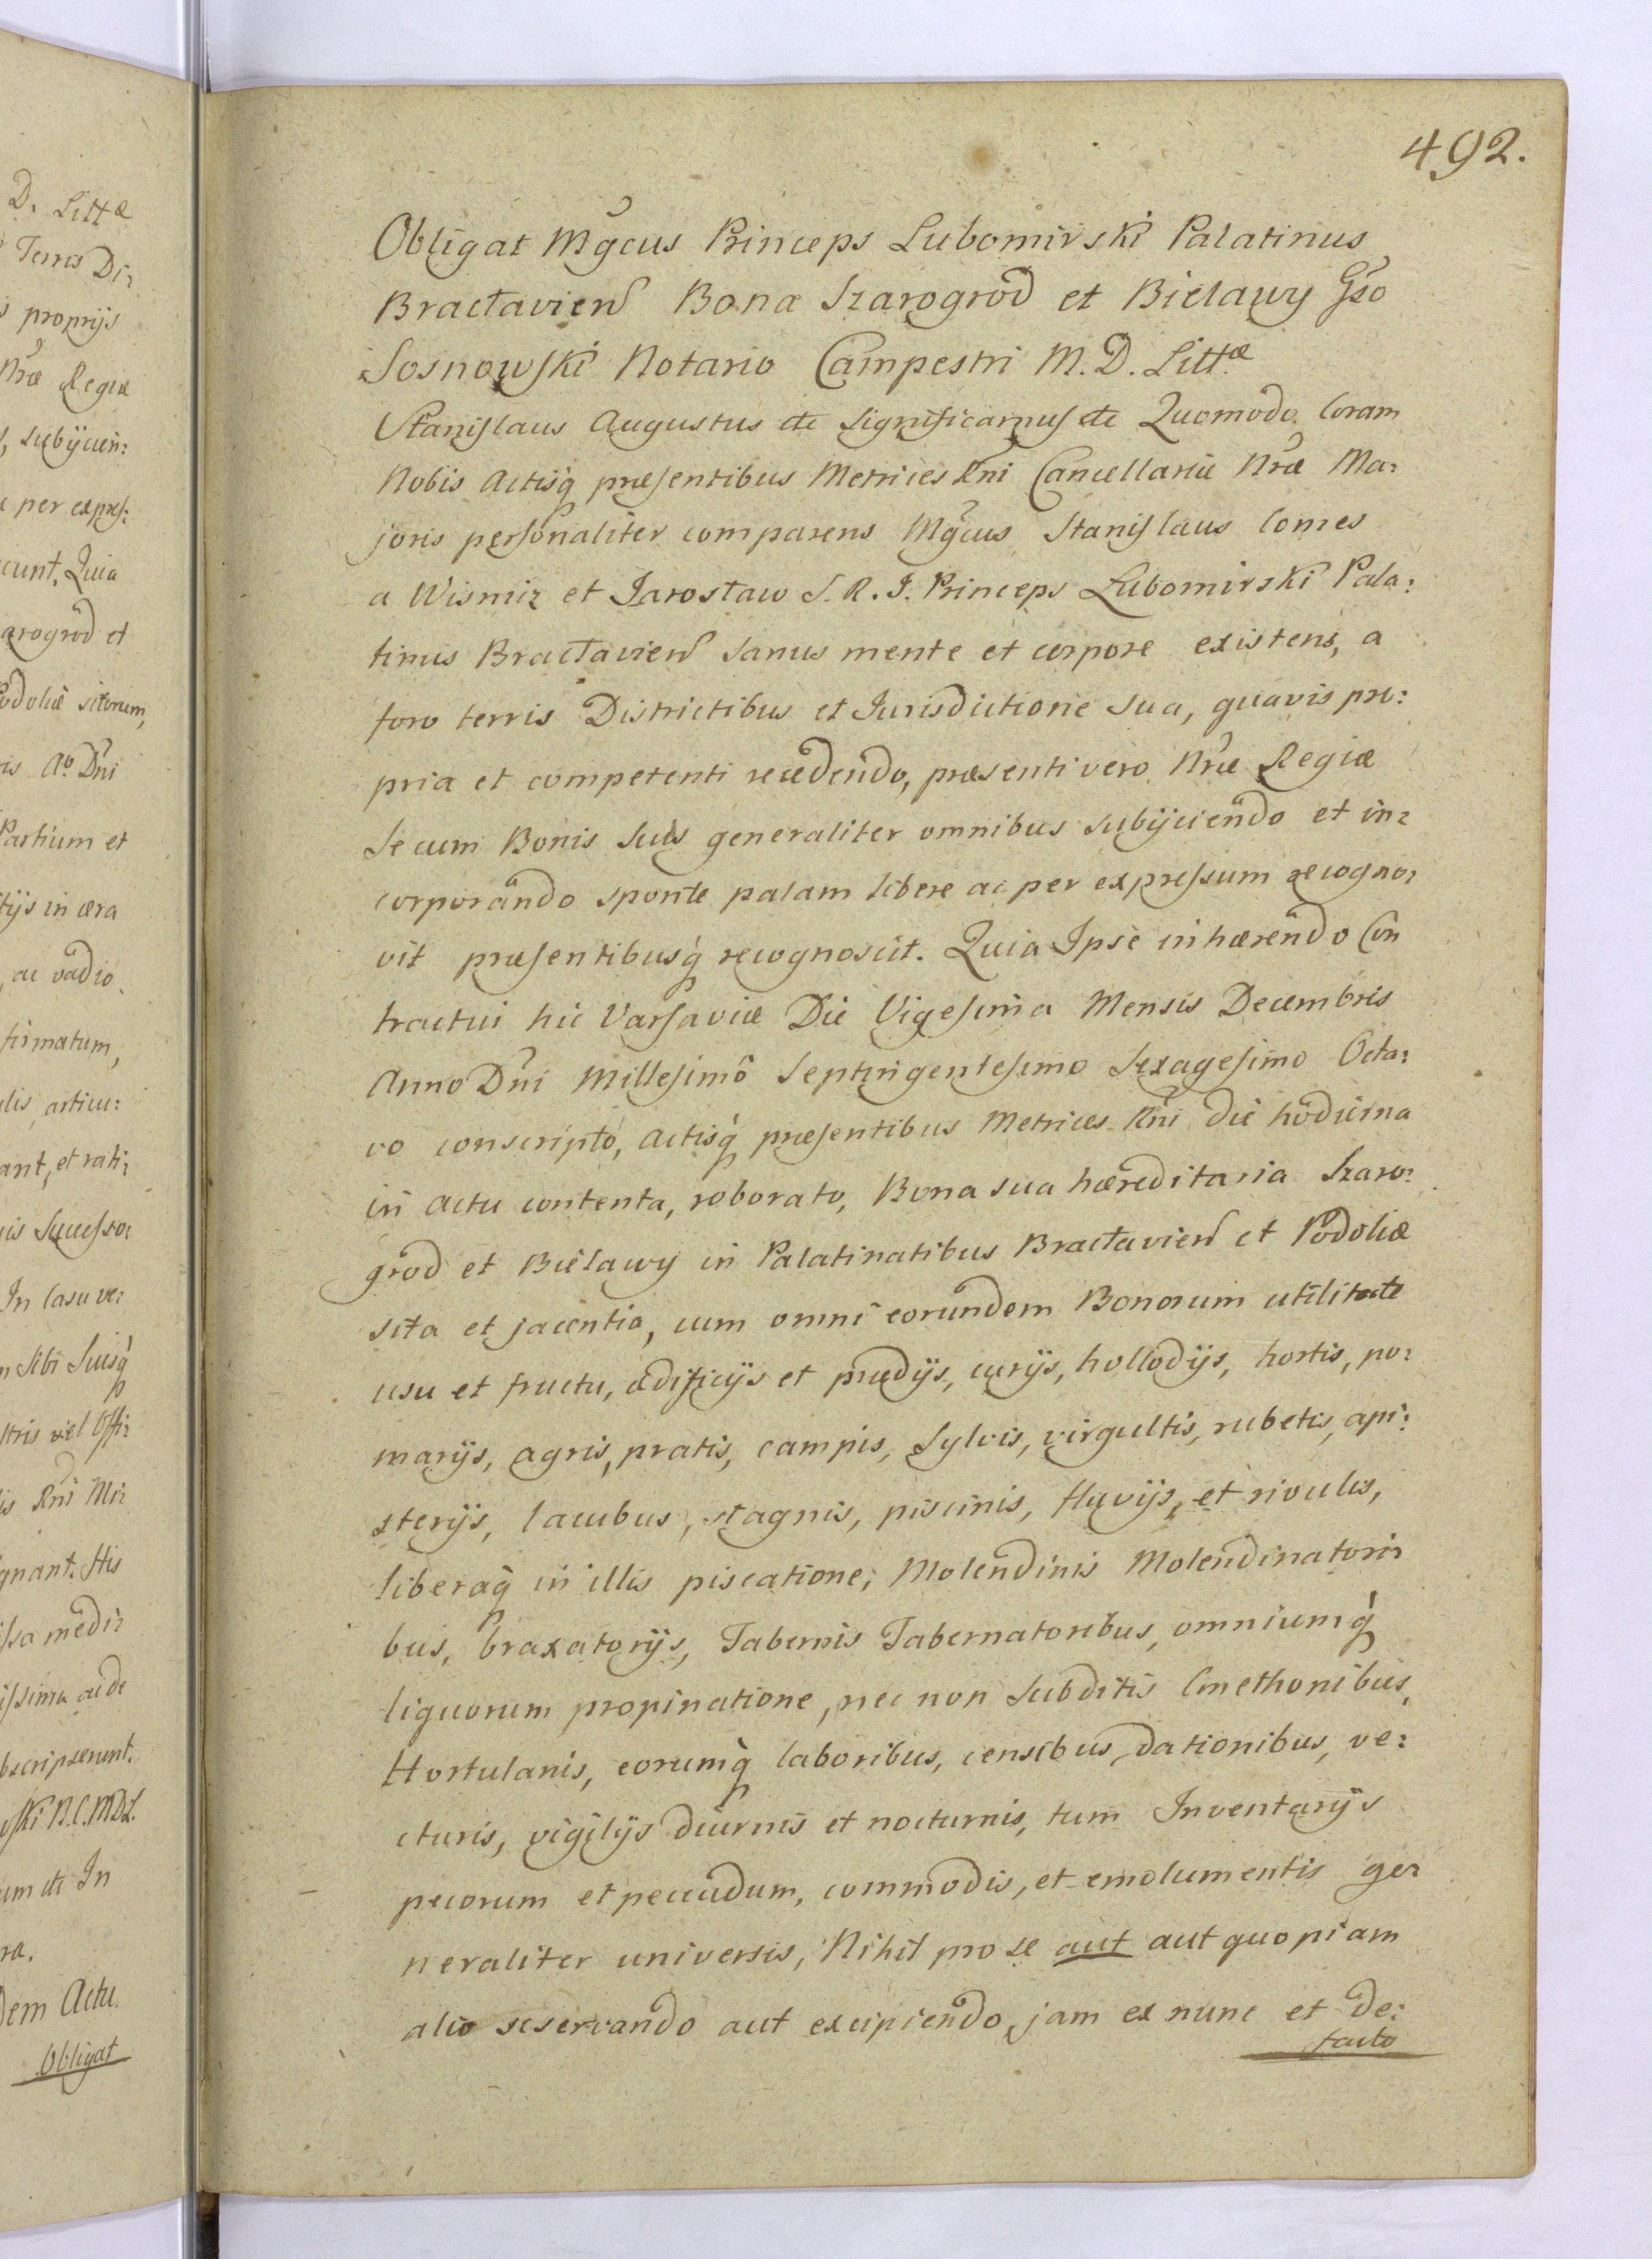 D. Littæ
Terris Di:
proprijs
Nræ Regiæ
subijcien:
per expres:
cunt. Quia
arogrod et
Podoliæ sitorum,
Ao Dni
Partium et
tijs in æra
ac vadio
firmatum,
lis, articu:
ant, et rati:
is Successo:
In Casu ve:
n Sibi Suisq
stris vel Offi:
is Rni Mi:
gnant. His
issa medi:
issima ac de
bscripserunt.
ski N.C.MDL.
um etc In
ra.
dem Actu.
Obligat
492.
Obligat Mgcus Princeps Lubomirski Palatinus
Bracłavien Bona Szarogrod et Bielawy Gso
Sosnowski Notario Campestri M. D. Littæ
Stanislaus Augustus etc Significamus etc Quomodo Coram
Nobis Actisq præsentibus Metrices Rni Cancellariæ Nræ Ma:
joris personaliter comparens Mgcus Stanislaus Comes
a Wisnicz et Jarosław S. R. I. Princeps Lubomirski Pala:
tinus Bracłavien Sanus mente et corpore existens, a
foro terris Districtibus et Jurisdictione Sua, quavis pro:
pria et competenti recedendo, præsenti vero Nræ Regiæ
Se cum Bonis Suis generaliter omnibus subijciendo et in:
corporando sponte palam libere ac per expressum recogno:
vit præsentibusq recognoscit. Quia Ipse inhærendo Con
tractui hic Varsaviæ Die Vigesima Mensis Decembris
Anno Dni Millesimo Septingentesimo Sexagesimo Octa:
vo conscripto, actisq præsentibus Metrices Rni die hodierna
in actu contenta, roborato, Bona sua hæreditaria Szaro:
grod et Bielawy in Palatinatibus Bracłavien et Podoliæ
sita et jacentia, cum omni eorundem Bonorum utilitate
usu et fructu, ædificijs et prædijs, curijs, hollodijs, hortis, po:
marijs, agris, pratis, campis, Sylvis, virgultis, rubetis, api:
sterijs, lacubus, stagnis, piscinis, fluvijs, et rivulis,
liberaq in illis piscatione; Molendinis Molendinatori:
bus, braxatorijs, Tabernis Tabernatoribus, omniumq
liquorum propinatione, nec non Subditis Cmethonibus,
Hortulanis, eorumq laboribus, censibus, dationibus, ve:
cturis, vigilijs diurnis et nocturnis, tum Inventarijs
pecorum et pecudum, commodis, et emolumentis ge:
neraliter universis, Nihil pro se aut aut quopiam
alio reservando aut excipiendo, jam ex nunc et de:
facto